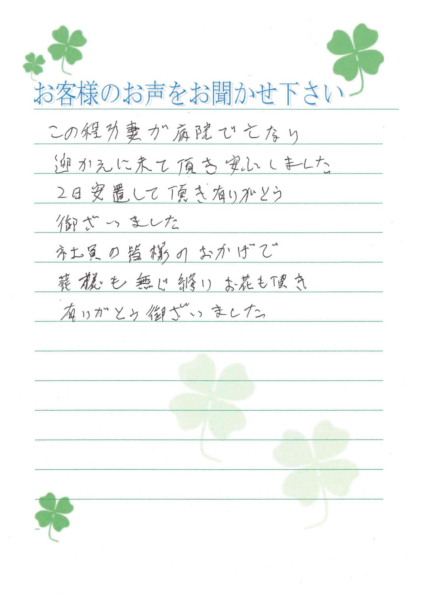 お客様のお声をお聞かせ下さい
この程妻が病院で亡なり
迎かえに来て頂き安心しました
2日安置して頂き有りがとう
御ざいました
社員の皆様のおかげで
葬様も無じ終り お花も頂き
有りがとう御ざいました